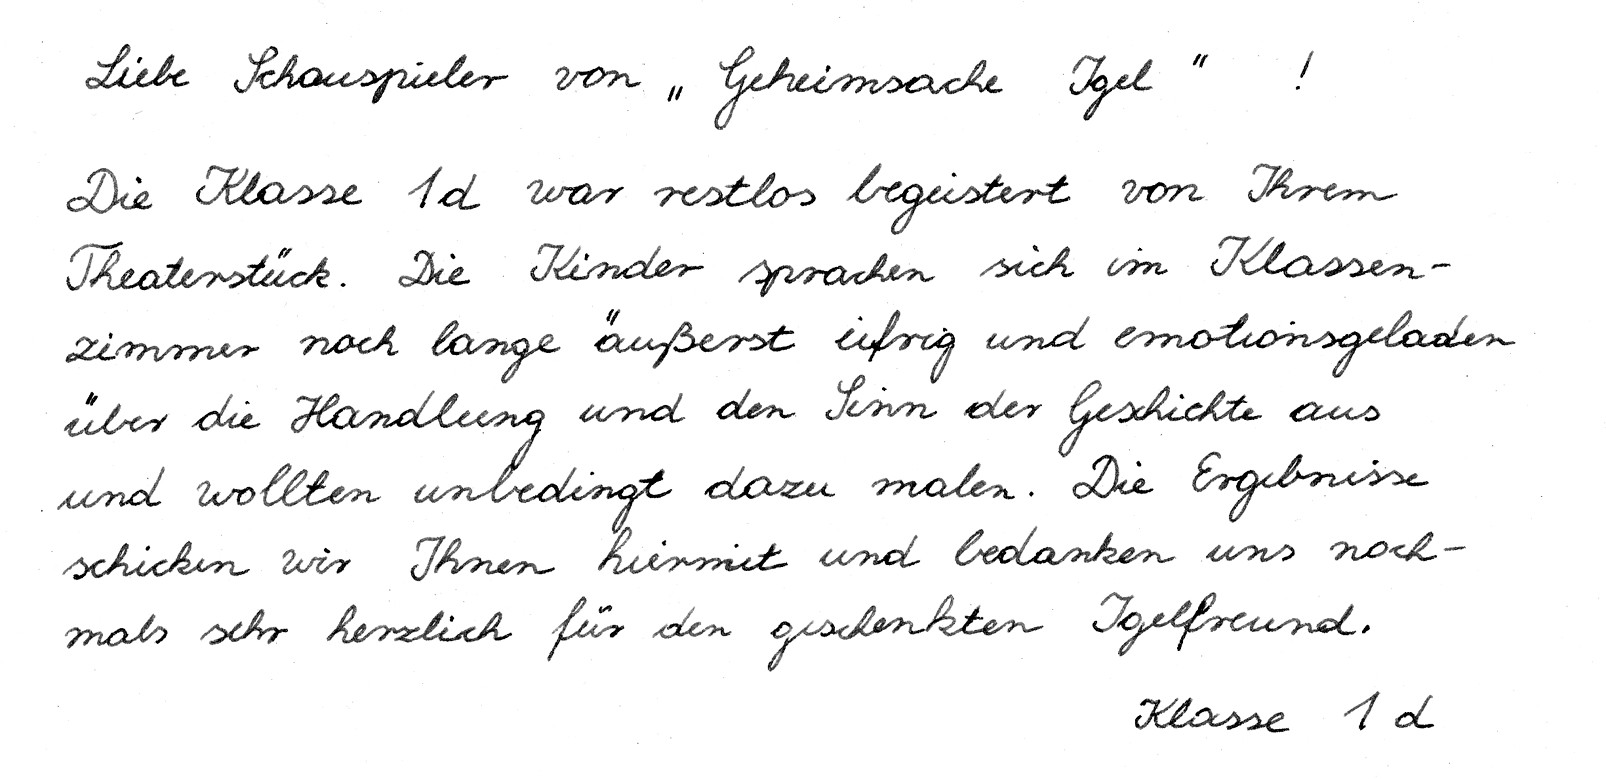 Liebe Schauspieler von „Geheimsache Igel" !
Die Klasse 1d war restlos begeistert von Ihrem
Theaterstück. Die Kinder sprachen sich im Klassen-
zimmer noch lange äußerst eifrig und emotionsgeladen
über die Handlung und den Sinn der Geschichte aus
und wollten unbedingt dazu malen. Die Ergebnisse
schicken wir Ihnen hiermit und bedanken uns noch-
mals sehr herzlich für den geschenkten Igelfreund.
Klasse 1d